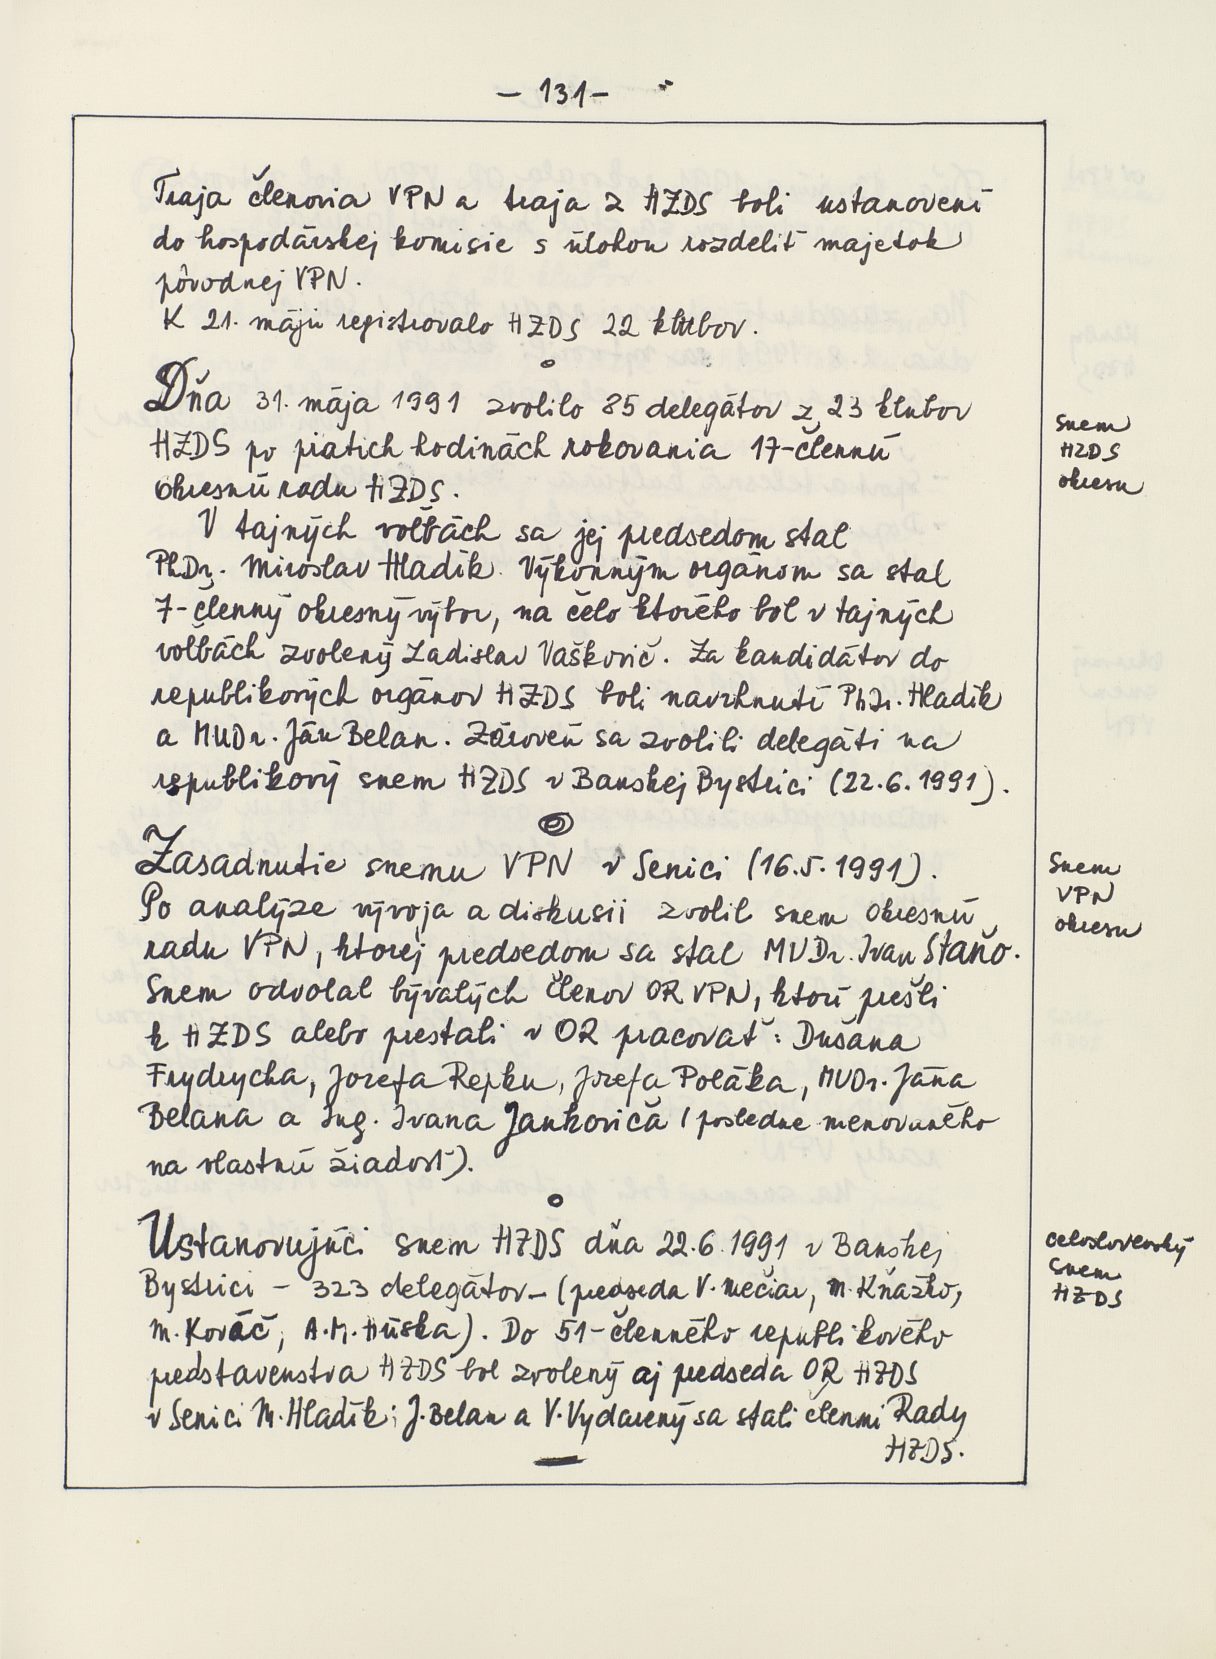 – 131 –
Traja členovia VPN a traja z HZDS boli ustanovení
do hospodárskej komisie s úlohou rozdeliť majetok
pôvodnej VPN.
K 21. máju registrovalo HZDS 22 klubov.
Dňa 31. mája 1991 zvolilo 85 delegátov z 23 klubov
HZDS po piatich hodinách rokovania 17-člennú
okresnú radu HZDS.
snem
HZDS
okresu
V tajných voľbách sa jej predsedom stal
PhDr. Miroslav Hladík. Výkonným orgánom sa stal
7-členný okresný výbor, na čelo ktorého bol v tajných
voľbách zvolený Ladislav Vaškovič. Za kandidátov do
republikových orgánov HZDS boli navrhnutí PhDr. Hladík
a MUDr. Ján Belan. Zároveň sa zvolili delegáti na
republikový snem HZDS v Banskej Bystrici (22.6.1991).
Zasadnutie snemu VPN v Senici (16.5.1991).
Po analýze vývoja a diskusii zvolil snem okresnú
radu VPN, ktorej predsedom sa stal MUDr. Ivan Staňo.
Snem
VPN
okresu
Snem odvolal bývalých členov OR VPN, ktorí prešli
k HZDS alebo prestali v OR pracovať: Dušana
Frydrycha, Jozefa Repku, Jozefa Poláka, MUDr. Jána
Belana a Ing. Ivana Jankoviča (posledne menovaného
na vlastnú žiadosť).
Ustanovujúci snem HZDS dňa 22.6.1991 v Banskej
Bystrici – 323 delegátov – (predseda V. Mečiar, M. Kňažko,
M. Kováč, A.M. Húska). Do 51-členného republikového
celoslovenský
snem
HZDS
predstavenstva HZDS bol zvolený aj predseda OR HZDS
v Senici M. Hladík; J. Belan a V. Vydarený sa stali členmi Rady
HZDS.